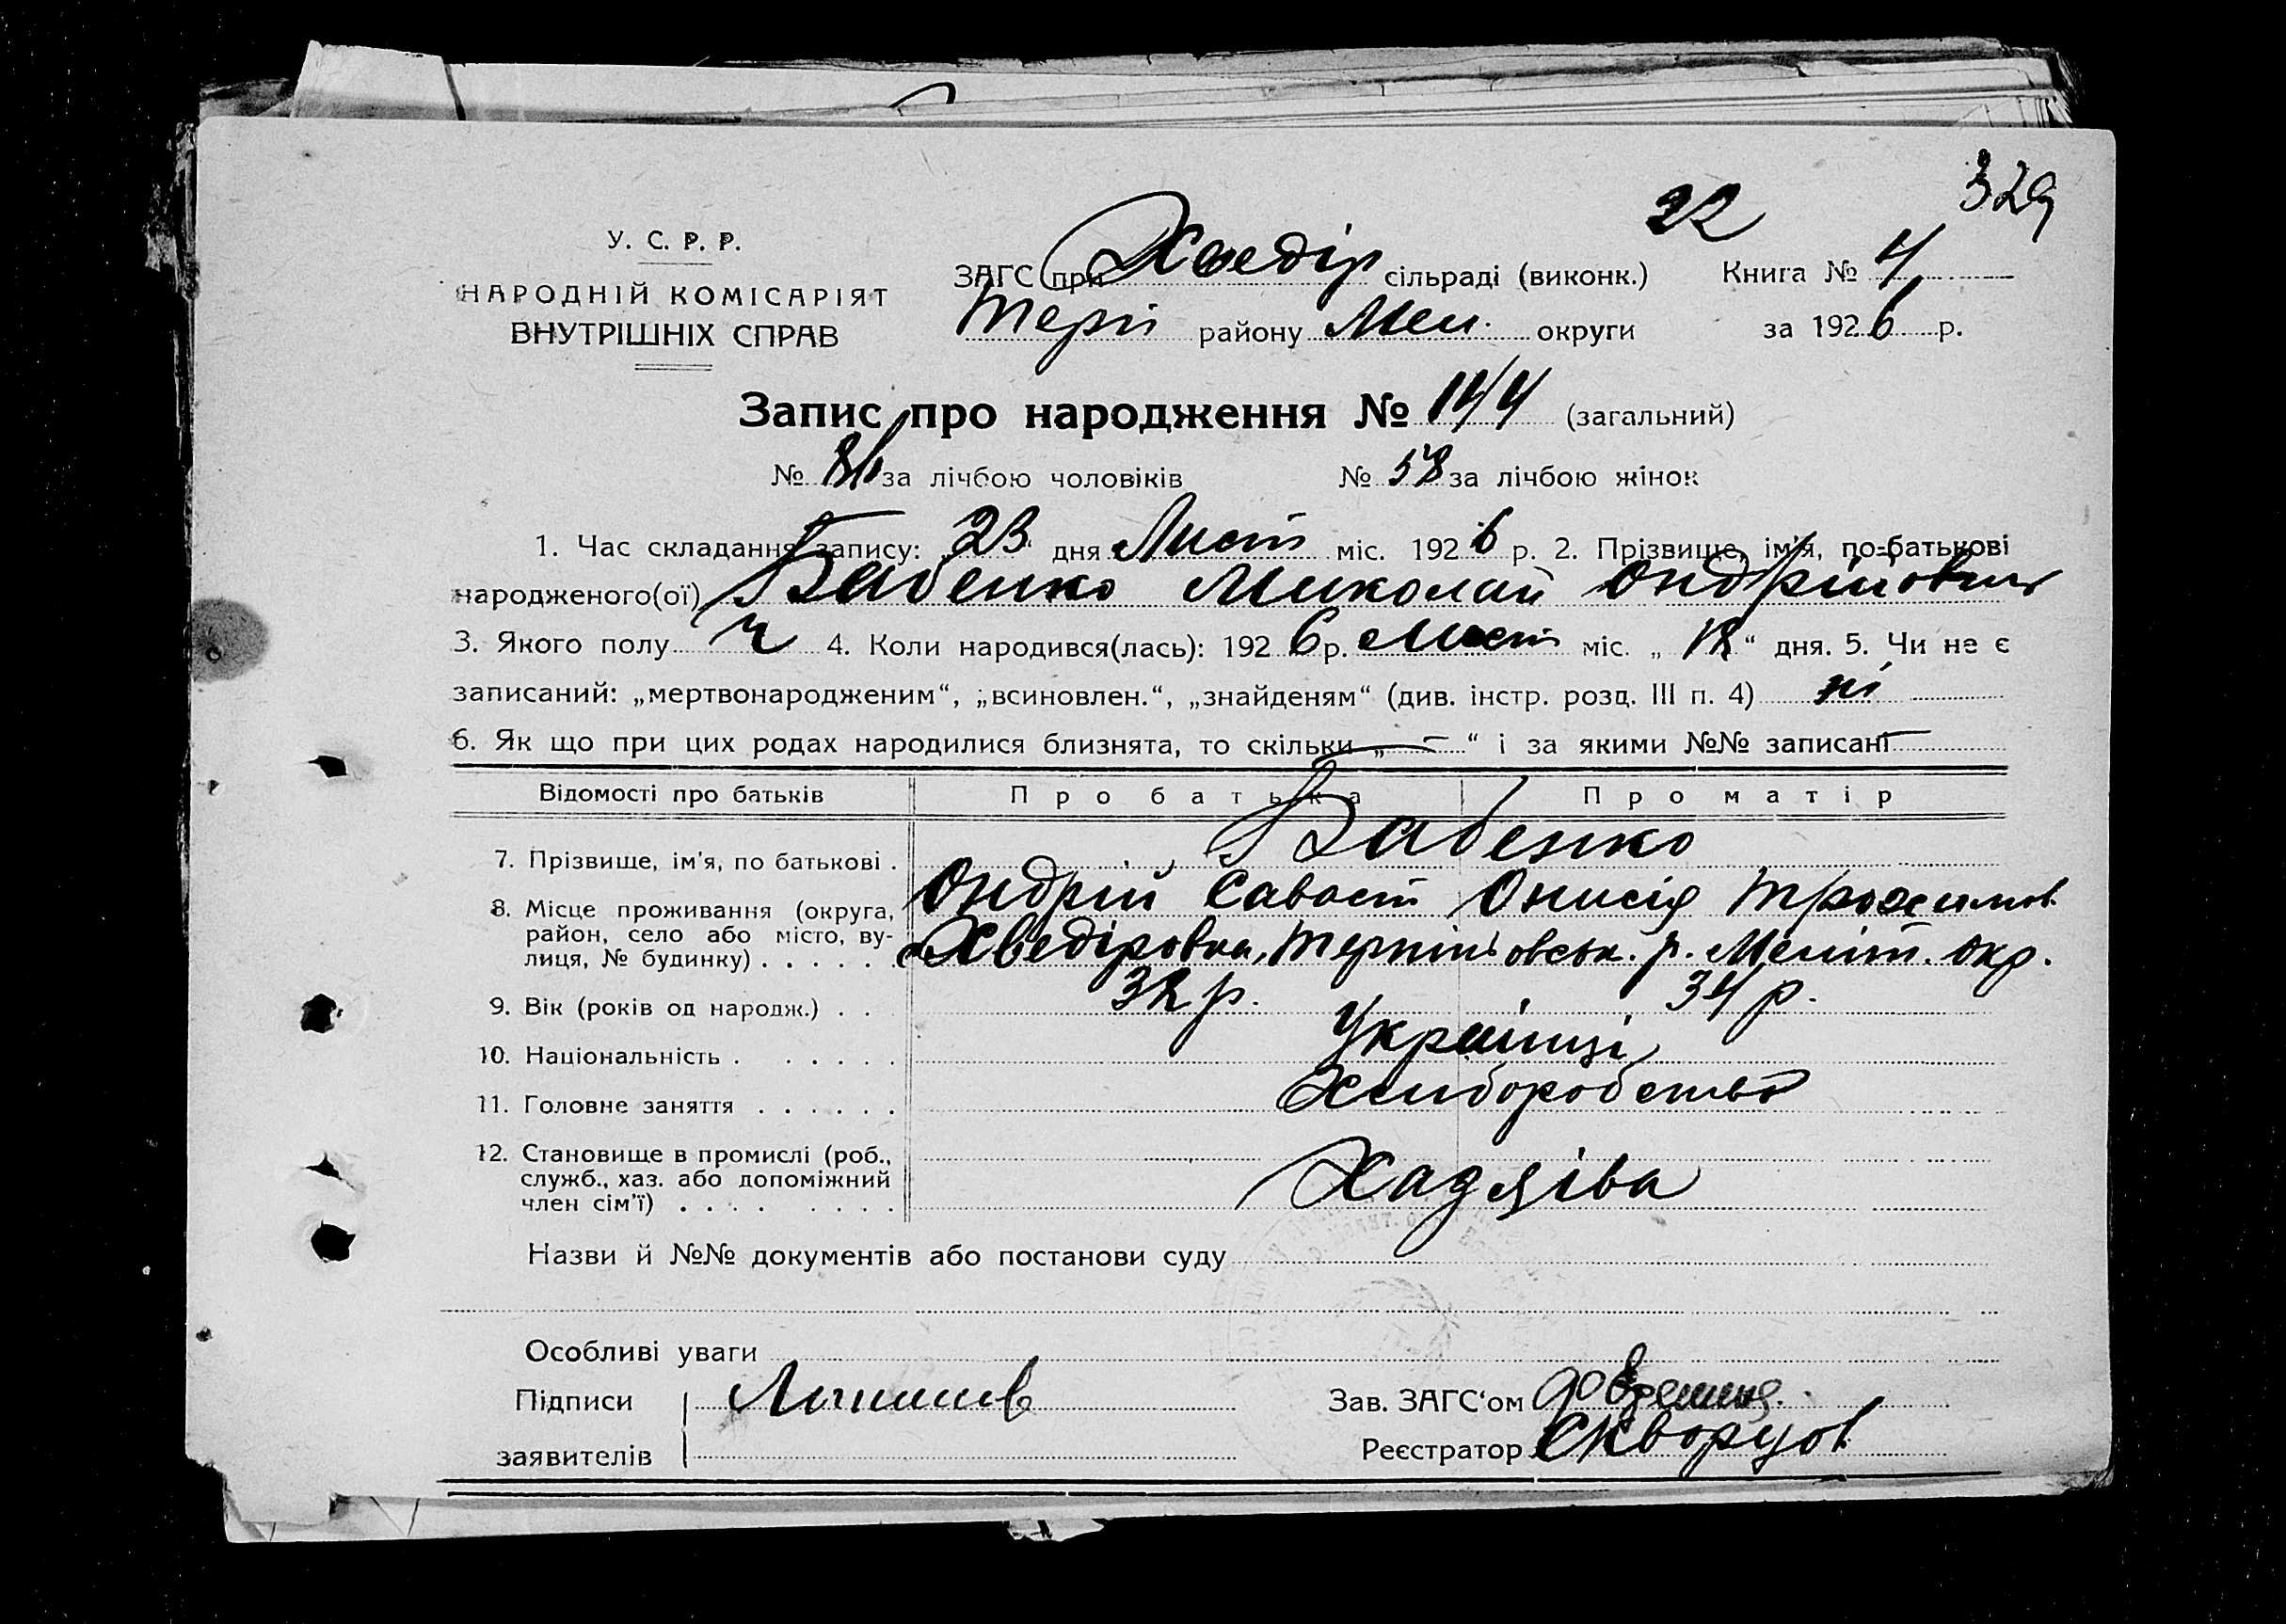 329
22
У. С. Р. Р.
НАРОДНІЙ КОМІСАРІЯТ
ВНУТРІШНІХ СПРАВ
ЗАГС при Хведір сільраді (виконк.) Книга № 4
Терп району Мел. округи за 1926 р.
Запис про народження № 144 (загальний)
№ 86 за лічбою чоловіків № 58 за лічбою жінок
1. Час складання запису: „23“ дня Лист міс. 1926 р. 2. Прізвище, ім'я, по-батькові
народженого(ої) Бабенко Миколай Ондрійович
3. Якого полу ч 4. Коли народився(лась): 1926 р. Лист міс. „18“ дня. 5. Чи не є
записаний: „мертвонародженим“, „всиновлен.“, „знайденям“ (див. інстр. розд. III п. 4) ні
6. Як що при цих родах народилися близнята, то скільки „ – “ і за якими №№ записані –
Відомості про батьків Про батька Про матір
7. Прізвище, ім'я, по батькові . Бабенко
Ондрій Савост Онисія Трохимов.
8. Місце проживання (округа, район, село або місто, ву-
лиця, № будинку) . . . . . . Хведіровка, Терпіньовськ. р. Меліт. окр.
9. Вік (років од народж.) . . 32 р. 34 р.
10. Національність . . . . . . Українці
11. Головне заняття . . . . . . Хлиборобство
12. Становище в промислі (роб.,
служб., хаз. або допоміжний
член сім'ї) . . . . . . . . Хадзяіва
Назви й №№ документів або постанови суду
Особливі уваги
Підписи
заявителів
Зав. ЗАГС'ом
Реєстратор Скворцов